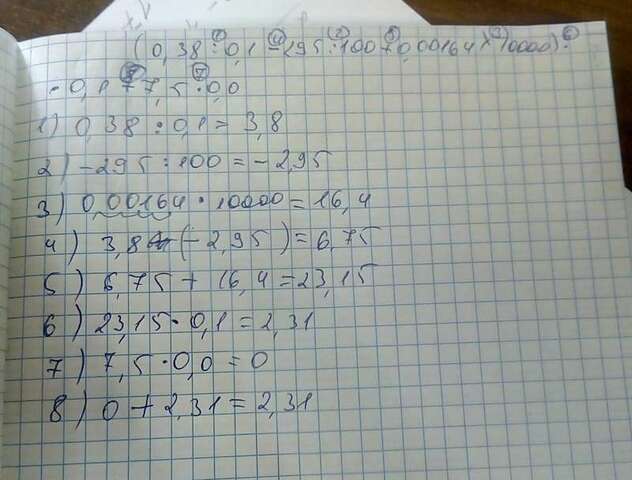 (0,38 : 0,1 - 295 : 100 + 0,00164 · 10000) ·
· 0,1 + 7,5 · 0,0
1) 0,38 : 0,1 = 3,8
2) -295 : 100 = -2,95
3) 0,00164 · 10000 = 16,4
4) 3,8 (-2,95) = 6,75
5) 6,75 + 16,4 = 23,15
6) 23,15 · 0,1 = 2,31
7) 7,5 · 0,0 = 0
8) 0 + 2,31 = 2,31